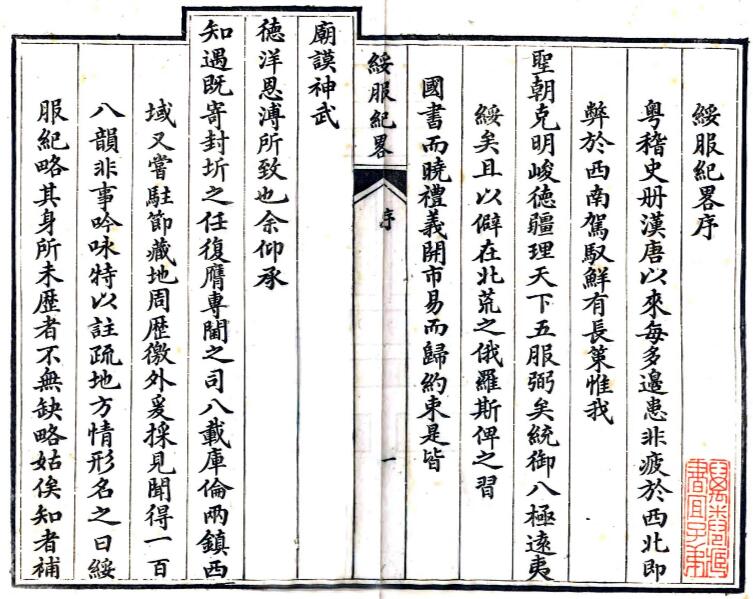 綏服紀畧序
粤稽史册漢唐以來每多邊患非疲於西北即
弊於西南駕馭鮮有長策惟我
聖朝克明峻德疆理天下五服弼矣統御八極遠夷
綏矣且以僻在北荒之俄羅斯俾之習
國書而曉禮義開市易而歸約束是皆
綏服紀畧
序
一
廟謨神武
德洋恩溥所致也余仰承
知遇既寄封圻之任復膺專閫之司八載庫倫兩鎮西
域又嘗駐節藏地周歴徼外爰採見聞得一百
八韻非事吟咏特以註疏地方情形名之曰綏
服紀略其身所未歴者不無缺略姑俟知者補